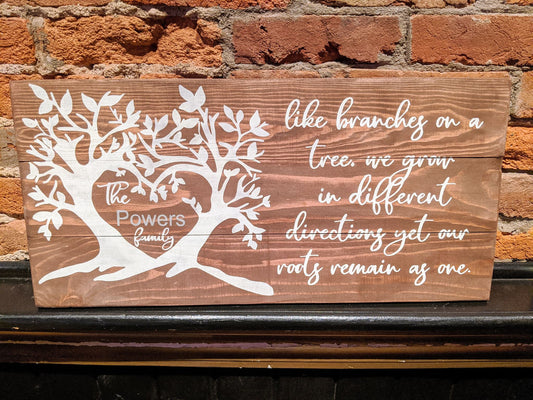 The
Powers
family
like branches on a
tree. we grow
in different
directions yet our
roots remain as one.